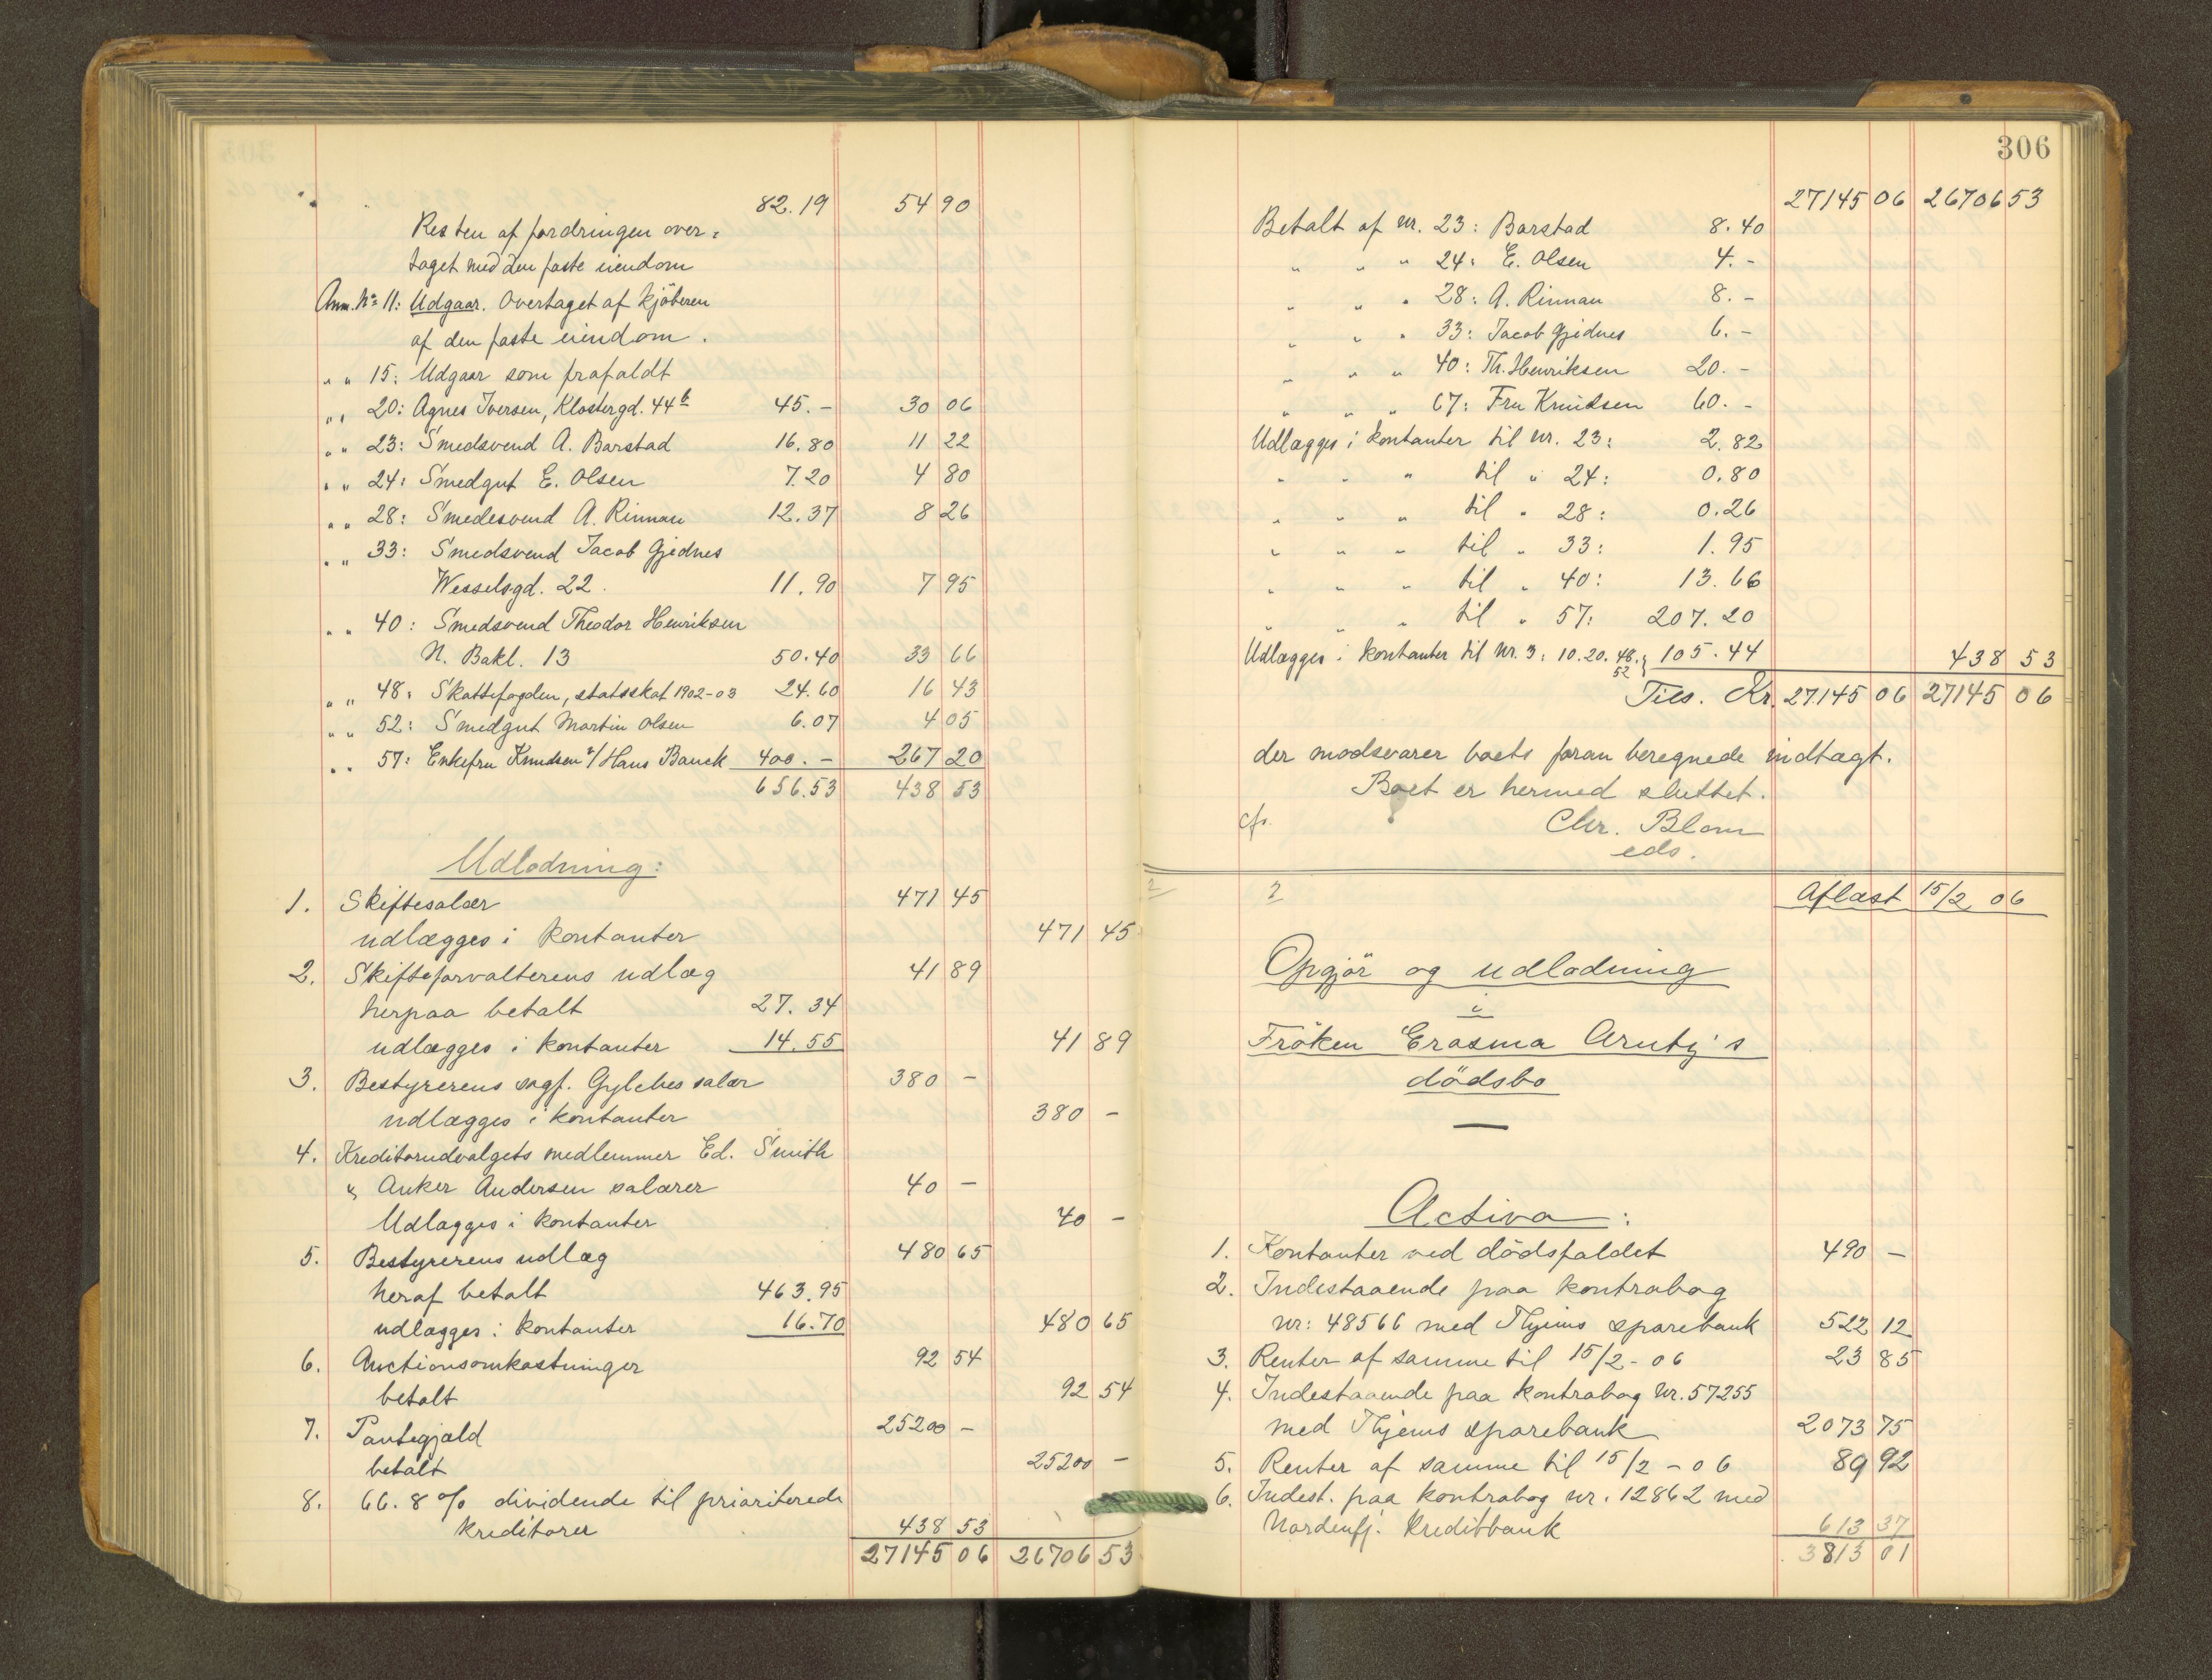 82.19 54 90
Resten af fordringen over=
taget med den faste eiendom
Anm. No 11: Udgaar. Overtaget af kjöberen
af den faste eiendom.
" " 15: Udgaar som frafaldt
" " 20: Agnes Iversen, Klostergd. 44b 45.- 30 06
" " 23: Smedsvend A. Barstad 16.80 11 22
" " 24: Smedgut E. Olsen 7.20 4 80
" " 28: Smedesvend A. Rinnan 12.37 8 26
" " 33: Smedsvend Jacob Gjednes
Wesselsgd. 22. 11.90 7 95
" " 40: Smedsvend Theodor Henriksen
N. Bakl. 13 50.40 33 66
" " 48: Skattefogden, statsskat 1902-03 24.60 16 43
" " 52: Smedgut Martin Olsen 6.07 4 05
" " 57: Enkefru Knudsen v/ Hans Bauck 400.- 267 20
656.53 438 53
Udlodning:
1. Skiftesalær 471 45
udlægges i kontanter 471 45
2. Skifteforvalterens udlæg 41 89
herpaa betalt 27.34
udlægges i kontanter 14.55 41 89
3. Bestyrerens sagf. Gylches salær 380 -
udlægges i kontanter 380 -
4. Kreditorudvalgets medlemmer Ed. Smith
& Anker Andersen salærer 40 -
Udlægges i kontanter 40 -
5. Bestyrerens udlæg 480 65
heraf betalt 463.95
udlægges i kontanter 16.70 480 65
6. Auctionsomkostninger 92 54
betalt 92 54
7. Pantegjæld 25200 -
betalt 25200 -
8. 66.8 % dividende til prioriterede
kreditorer 438 53
27145 06 26706 53
306
27145 06 26706 53
Betalt af nr. 23: Barstad 8.40
" " " 24: E. Olsen 4.-
" " " 28: A. Rinnan 8.-
" " " 33: Jacob Gjednes 6.-
" " " 40: Th. Henriksen 20.-
" " " 67: Fru Knudsen 60.-
Udlægges i kontanter til nr. 23: 2.82
" " " til " 24: 0.80
" " " til " 28: 0.26
" " " til " 33: 1.95
" " " til " 40: 13.66
" " " til " 57: 207.20
Udlægges i kontanter til nr. 3, 10. 20. 48. 52 105.44 438 53
Tils. Kr. 27145 06 27145 06
der modsvarer boets foran beregnede indtægt.
Boet er hermed sluttet.
cfr. Chr. Blom
eds.
Aflæst 15/2 06
Opgjör og udlodning
i
Fröken Erasma Arntz's
dödsbo
Activa:
1. Kontanter ved dödsfaldet 490 -
2. Indestaaende paa kontrabog
nr: 48566 med Thjems sparebank 522 12
3. Renter af samme til 15/2-06 23 85
4. Indestaaende paa kontrabog nr. 57255
med Thjems sparebank 2073 75
5. Renter af samme til 15/2-06 89 92
6. Indest. paa kontrabog nr. 12862 med
Nordenfj. kreditbank 613 37
3813 01